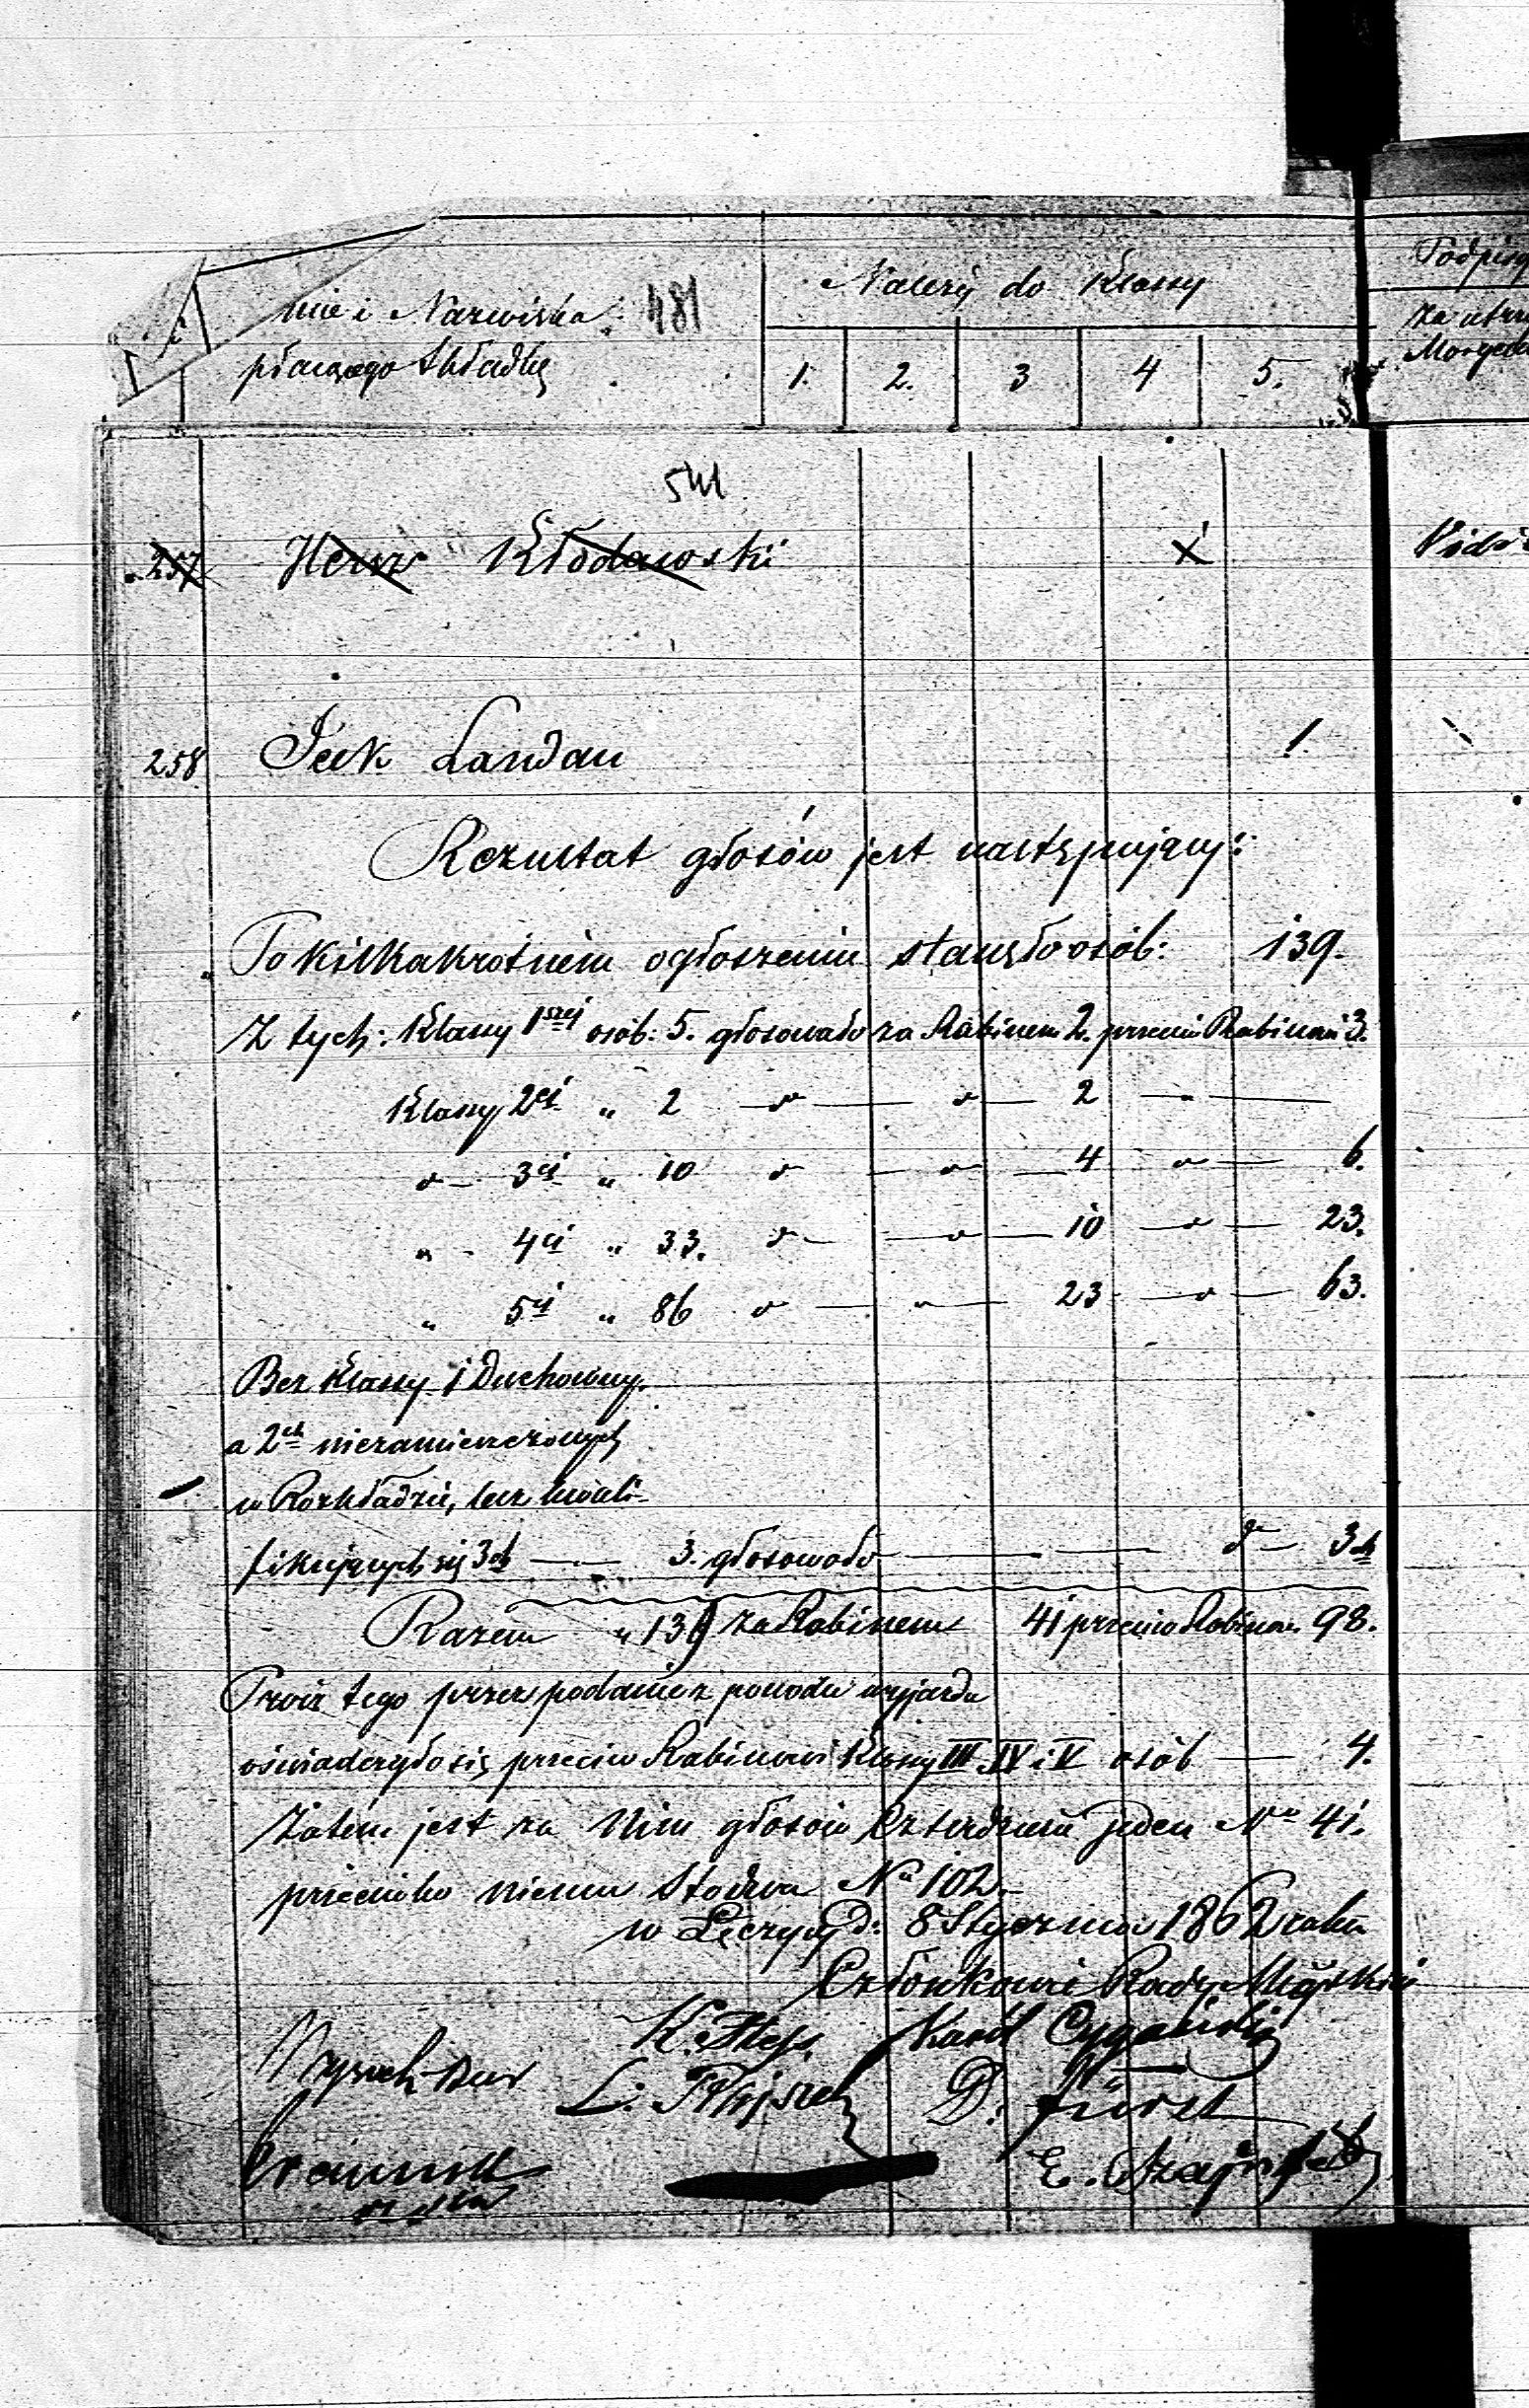 mie i Nazwiska 481
płacącego składkę
Należy do Klassy
1. 2. 3 4 5.
Podpisy
Za utrzy
541
257 Hersz Kłodawski x
258 Icek Landau 1.
Rezultat głosów jest następujący:
Po kilkakrotném ogłoszeniu stanęło osób: 139.
Z tych: Klassy 1széj osób: 5. głosowało za Rabinem 2. przeciw Rabinowi 3.
Klassy 2éj " 2 — " — " — 2 — " —
" — 3éj " 10 " — " — 4 " — 6.
" - 4éj " 33. " — " — 10 — " — 23.
" 5éj " 86 " — " — 23 — " — 63.
Bez Klassy 1 Duchowny.
a 2ch niezamieszczonych
w Rozkładzie, lecz kwali-
fikujących się 3ch — 3. głosowało — " — 3ch
Razem " 139 za Rabinem 41 przeciw Rabinow. 98.
Prócz tego przez podanie z powodu wyjazdu
oświadczyło się przeciw Rabinowi Klassy III. IV i V osób — 4.
Zatém jest za Nim głosów Czterdzieści jeden Nro 41.
przeciwko niemu Stodwa No 102.
w Łęczycy d: 8 Stycznia 1862 roku
Członkowie Rady Miejskiéj
Karol Cygański
D. Fürst